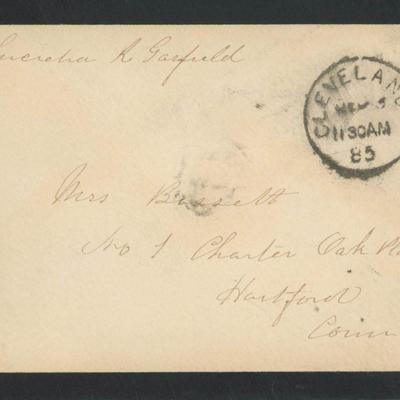 Lucretia R Garfield
CLEVELAN
11 30 AM
85
Mrs Bissell
No 1 Charter Oak Pl
Hartford
Conn